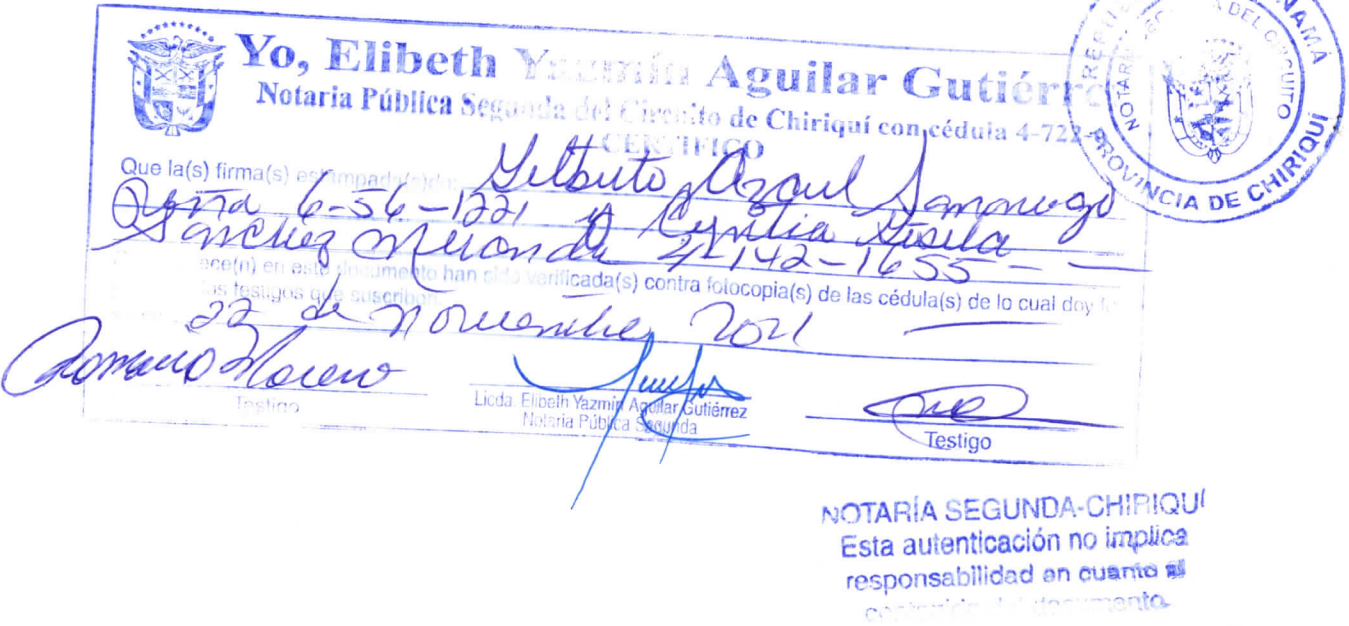 Yo, Elibeth Yazmín Aguilar Gutiérre
Notaria Pública Segunda del Circuito de Chiriquí con cédula 4-722-
CERTIFICO
Que la(s) firma(s) estampada(s) de: Gilberto Azael Samaniego
Peña 6-56-1221 y Cyntia Gisela
Sanchez Miranda 4-142-1655 - —
ece(n) en este documento han sido verificada(s) contra fotocopia(s) de las cédula(s) de lo cual doy fe
los testigos que suscriben.
22 de Noviembre 2021 —
Romano Moreno
Testigo
Licda. Elibeth Yazmín Aguilar Gutiérrez
Notaria Pública Segunda
Testigo
DEL CIRCUITO
NOTAR
PROVINCIA DE CHIRIQUÍ
NOTARÍA SEGUNDA-CHIRIQUÍ
Esta autenticación no implica
responsabilidad en cuanto al
contenido del documento.